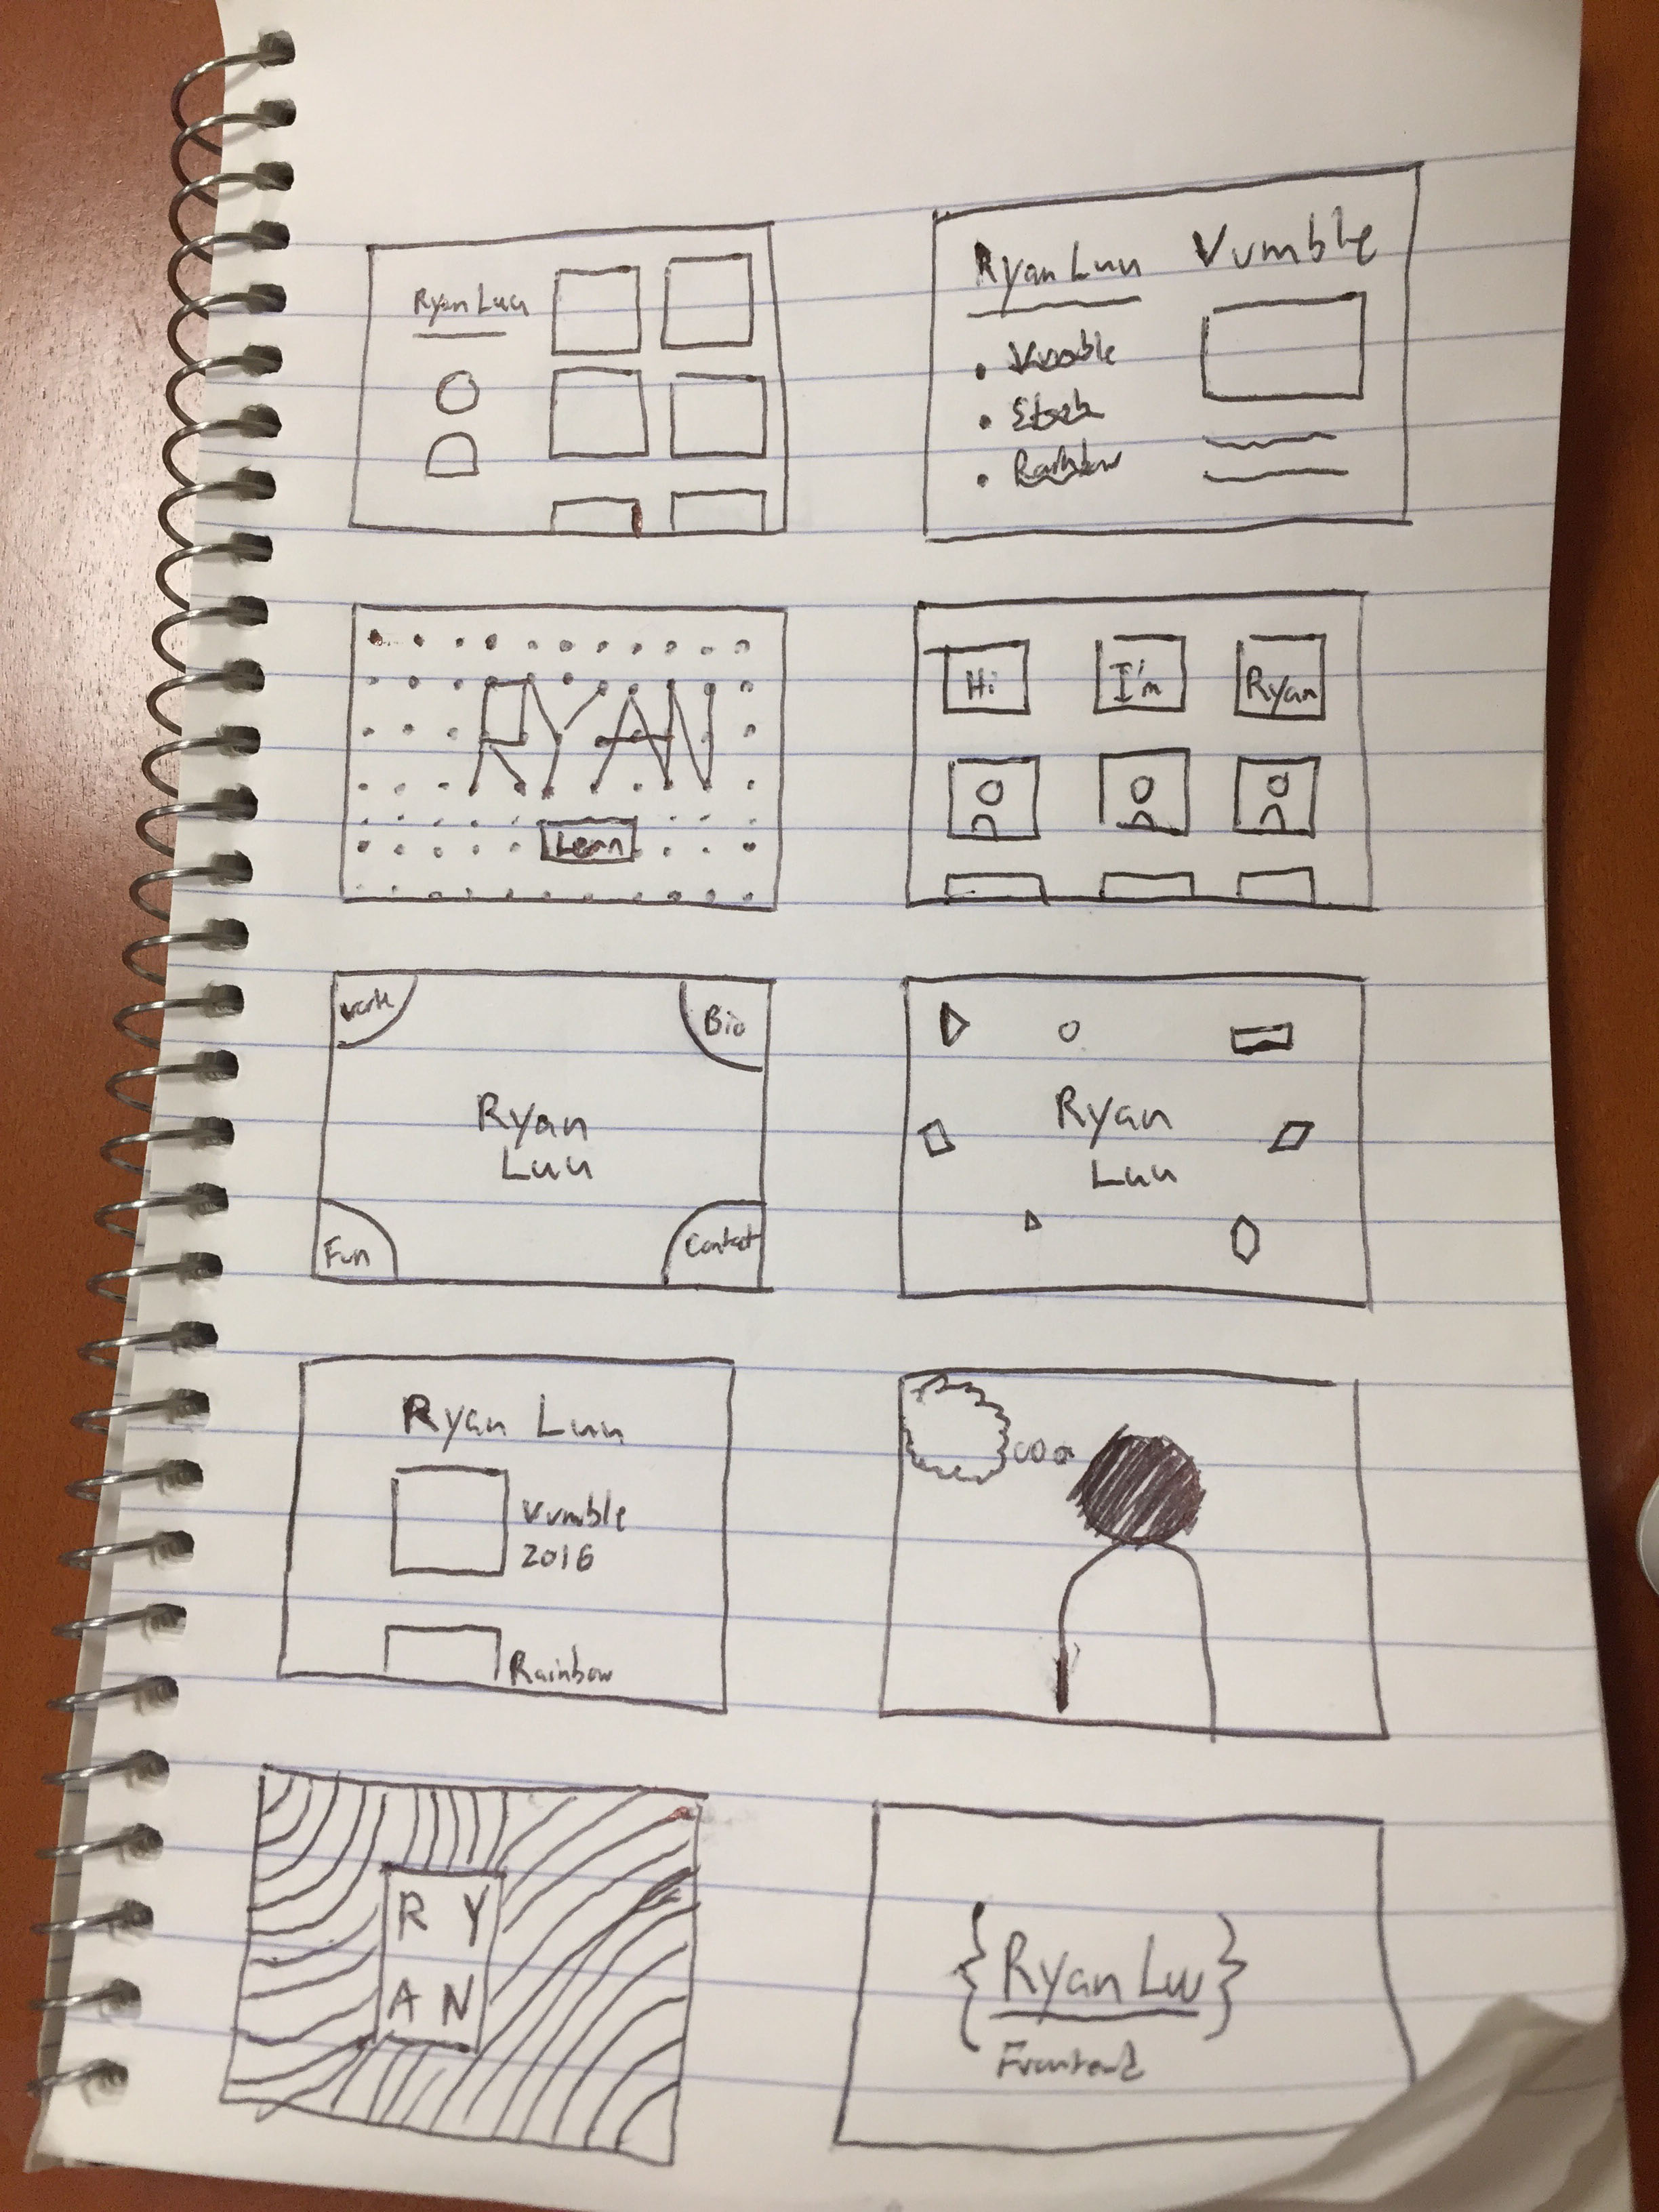 Ryan Luu
Ryan Luu
Vumble
• Vumble
• Rainbow
RYAN
Learn
Hi
I'm
Ryan
Work
Bio
Ryan
Luu
Fun
Contact
Ryan
Luu
Ryan Luu
Vumble
2016
Rainbow
R Y
A N
{Ryan Luu}
Frontend